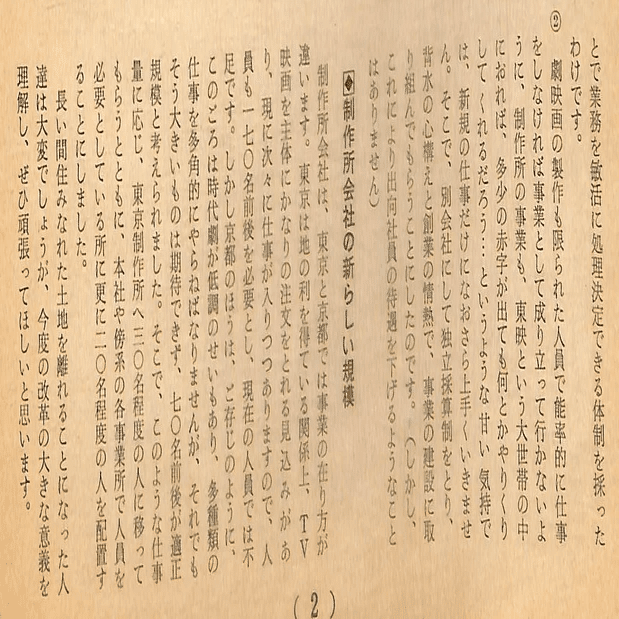 とで業務を敏活に処理決定できる体制を採った
わけです。
② 劇映画の製作も限られた人員で能率的に仕事
をしなければ事業として成り立って行かないよ
うに、制作所の事業も、東映という大世帯の中
におれば、多少の赤字が出ても何とかやりくり
してくれるだろう…というような甘い気持で
は、新規の仕事だけになおさら上手くいきませ
ん。そこで、別会社にして独立採算制をとり、
背水の心構えと創業の情熱で、事業の建設に取
り組んでもらうことにしたのです。（しかし、
これにより出向社員の待遇を下げるようなこと
はありません）
◆制作所会社の新らしい規模
制作所会社は、東京と京都では事業の在り方が
違います。東京は地の利を得ている関係上、TV
映画を主体にかなりの注文をとれる見込みがあ
り、現に次々に仕事が入りつつありますので、人
員も一七〇名前後を必要とし、現在の人員では不
足です。しかし京都のほうは、ご存じのように、
このごろは時代劇が低調のせいもあり、多種類の
仕事を多角的にやらねばなりませんが、それでも
そう大きいものは期待できず、七〇名前後が適正
規模と考えられました。そこで、このような仕事
量に応じ、東京制作所へ三〇名程度の人に移って
もらうとともに、本社や傍系の各事業所で人員を
必要としている所に更に二〇名程度の人を配置す
ることにしました。
長い間住みなれた土地を離れることになった人
達は大変でしょうが、今度の改革の大きな意義を
理解し、ぜひ頑張ってほしいと思います。
(2)